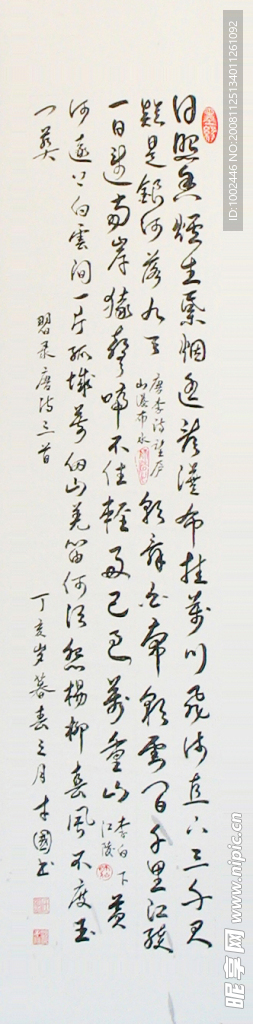 日照香爐生紫烟遥看瀑布挂前川飛流直下三千尺
疑是銀河落九天
唐李詩望庐
山瀑布水
朝辞白帝彩雲間千里江陵
一日還兩岸猿聲啼不住輕舟已過萬重山
李白下
江陵
黄
河遠上白雲间一片孤城萬仞山羌笛何須怨楊柳春風不度玉
门关
習录唐诗三首
丁亥岁暮春之月才國书
ID:1002446 NO:20081125134011261092
昵享网 www.nipic.cn